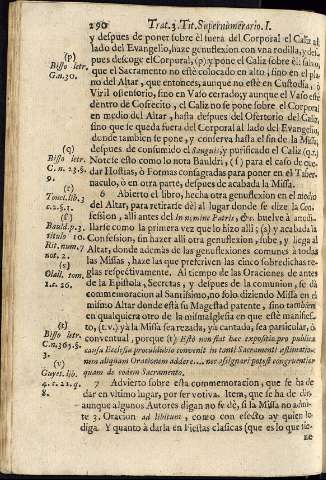 290 Trat. 3. Tit. Supernumerario. I.
y despues de poner sobre èl fuera del Corporal el Caliz al
lado del Evangelio, haze genuflexion con vna rodilla, y des-
pues descoge el Corporal, (p) y pone el Caliz sobre èl: salvo,
que el Sacramento no estè colocado en alto, sino en el pla-
no del Altar, que entonces, aunque no estè en Custodia, ò
Viril ostensorio, sino en Vaso cerrado, y aunque el Vaso estè
dentro de Cofrecito, el Caliz no se pone sobre el Corporal
en medio del Altar, hasta despues del Ofertorio del Caliz,
sino que se queda fuera del Corporal al lado del Evangelio,
donde tambien se pone, y conserva hasta el fin de la Missa,
despues de consumido el Sanguis, y purificado el Caliz (q.r.)
Notese esto como lo nota Bauldri, (s) para el caso de que-
dar Hostias, ò Formas consagradas para poner en el Taber-
naculo, ò en otra parte, despues de acabada la Missa.
6 Abierto el libro, hecha otra genuflexion en el medio
del Altar, para retirarse dèl al lugar donde se dize la Con-
fession, alli antes del In nomine Patris, &c. buelve à arrodi-
llarse como la primera vez que lo hizo alli; (s) y acabada la
Confession, sin hazer alli otra genuflexion, sube, y llega al
Altar, donde además de las genuflexiones comunes à todas
las Missas, haze las que prefcriven las cinco sobredichas re-
glas respectivamente. Al tiempo de las Oraciones de antes
de la Epistola, Secretas, y despues de la comunion, se dà
conmemoracion al Santissimo, no solo diziendo Missa en el
mismo Altar donde està su Magestad patente, sino tambien
en qualquiera otro de la misma Iglesia en que estè manifies-
to, (t.v.) yà la Missa sea rezada, yà cantada, sea particular, ò
conventual, porque (t) Estò non stat hæc expositio pro publica
causa Ecclesiæ procul dubio convenit in tanti Sacramenti æstimatio-
nem aliquam Orationem addere.... nec assignari potest congruentior
quam de eodem Sacramento.
7 Advierto sobre esta commemoracion, que se ha de
dar en vltimo lugar, por ser votiva. Item, que se ha de dar
aunque algunos Autores digan no se dè, si la Missa no admi-
te 3. Oracion ad libitum, como con efecto ay quien lo
diga. Y quanto à darla en Fiestas clasicas (que es lo que tie-
ne
(p)
Bisso letr.
G.n.30.
(q)
Bisso letr.
C. n. 23. §.
9.
(r)
Tonel. lib. 3.
c.2. §.1.
(s)
Bauld. p. 3.
titulo 10.
Rit. num. 7
not. 2.
(s)
Olall. tom.
1.c. 26.
(t)
Bisso letr.
C.n. 365. §.
3.
(v)
Guyet. lib.
4. c. 21. q.
8.